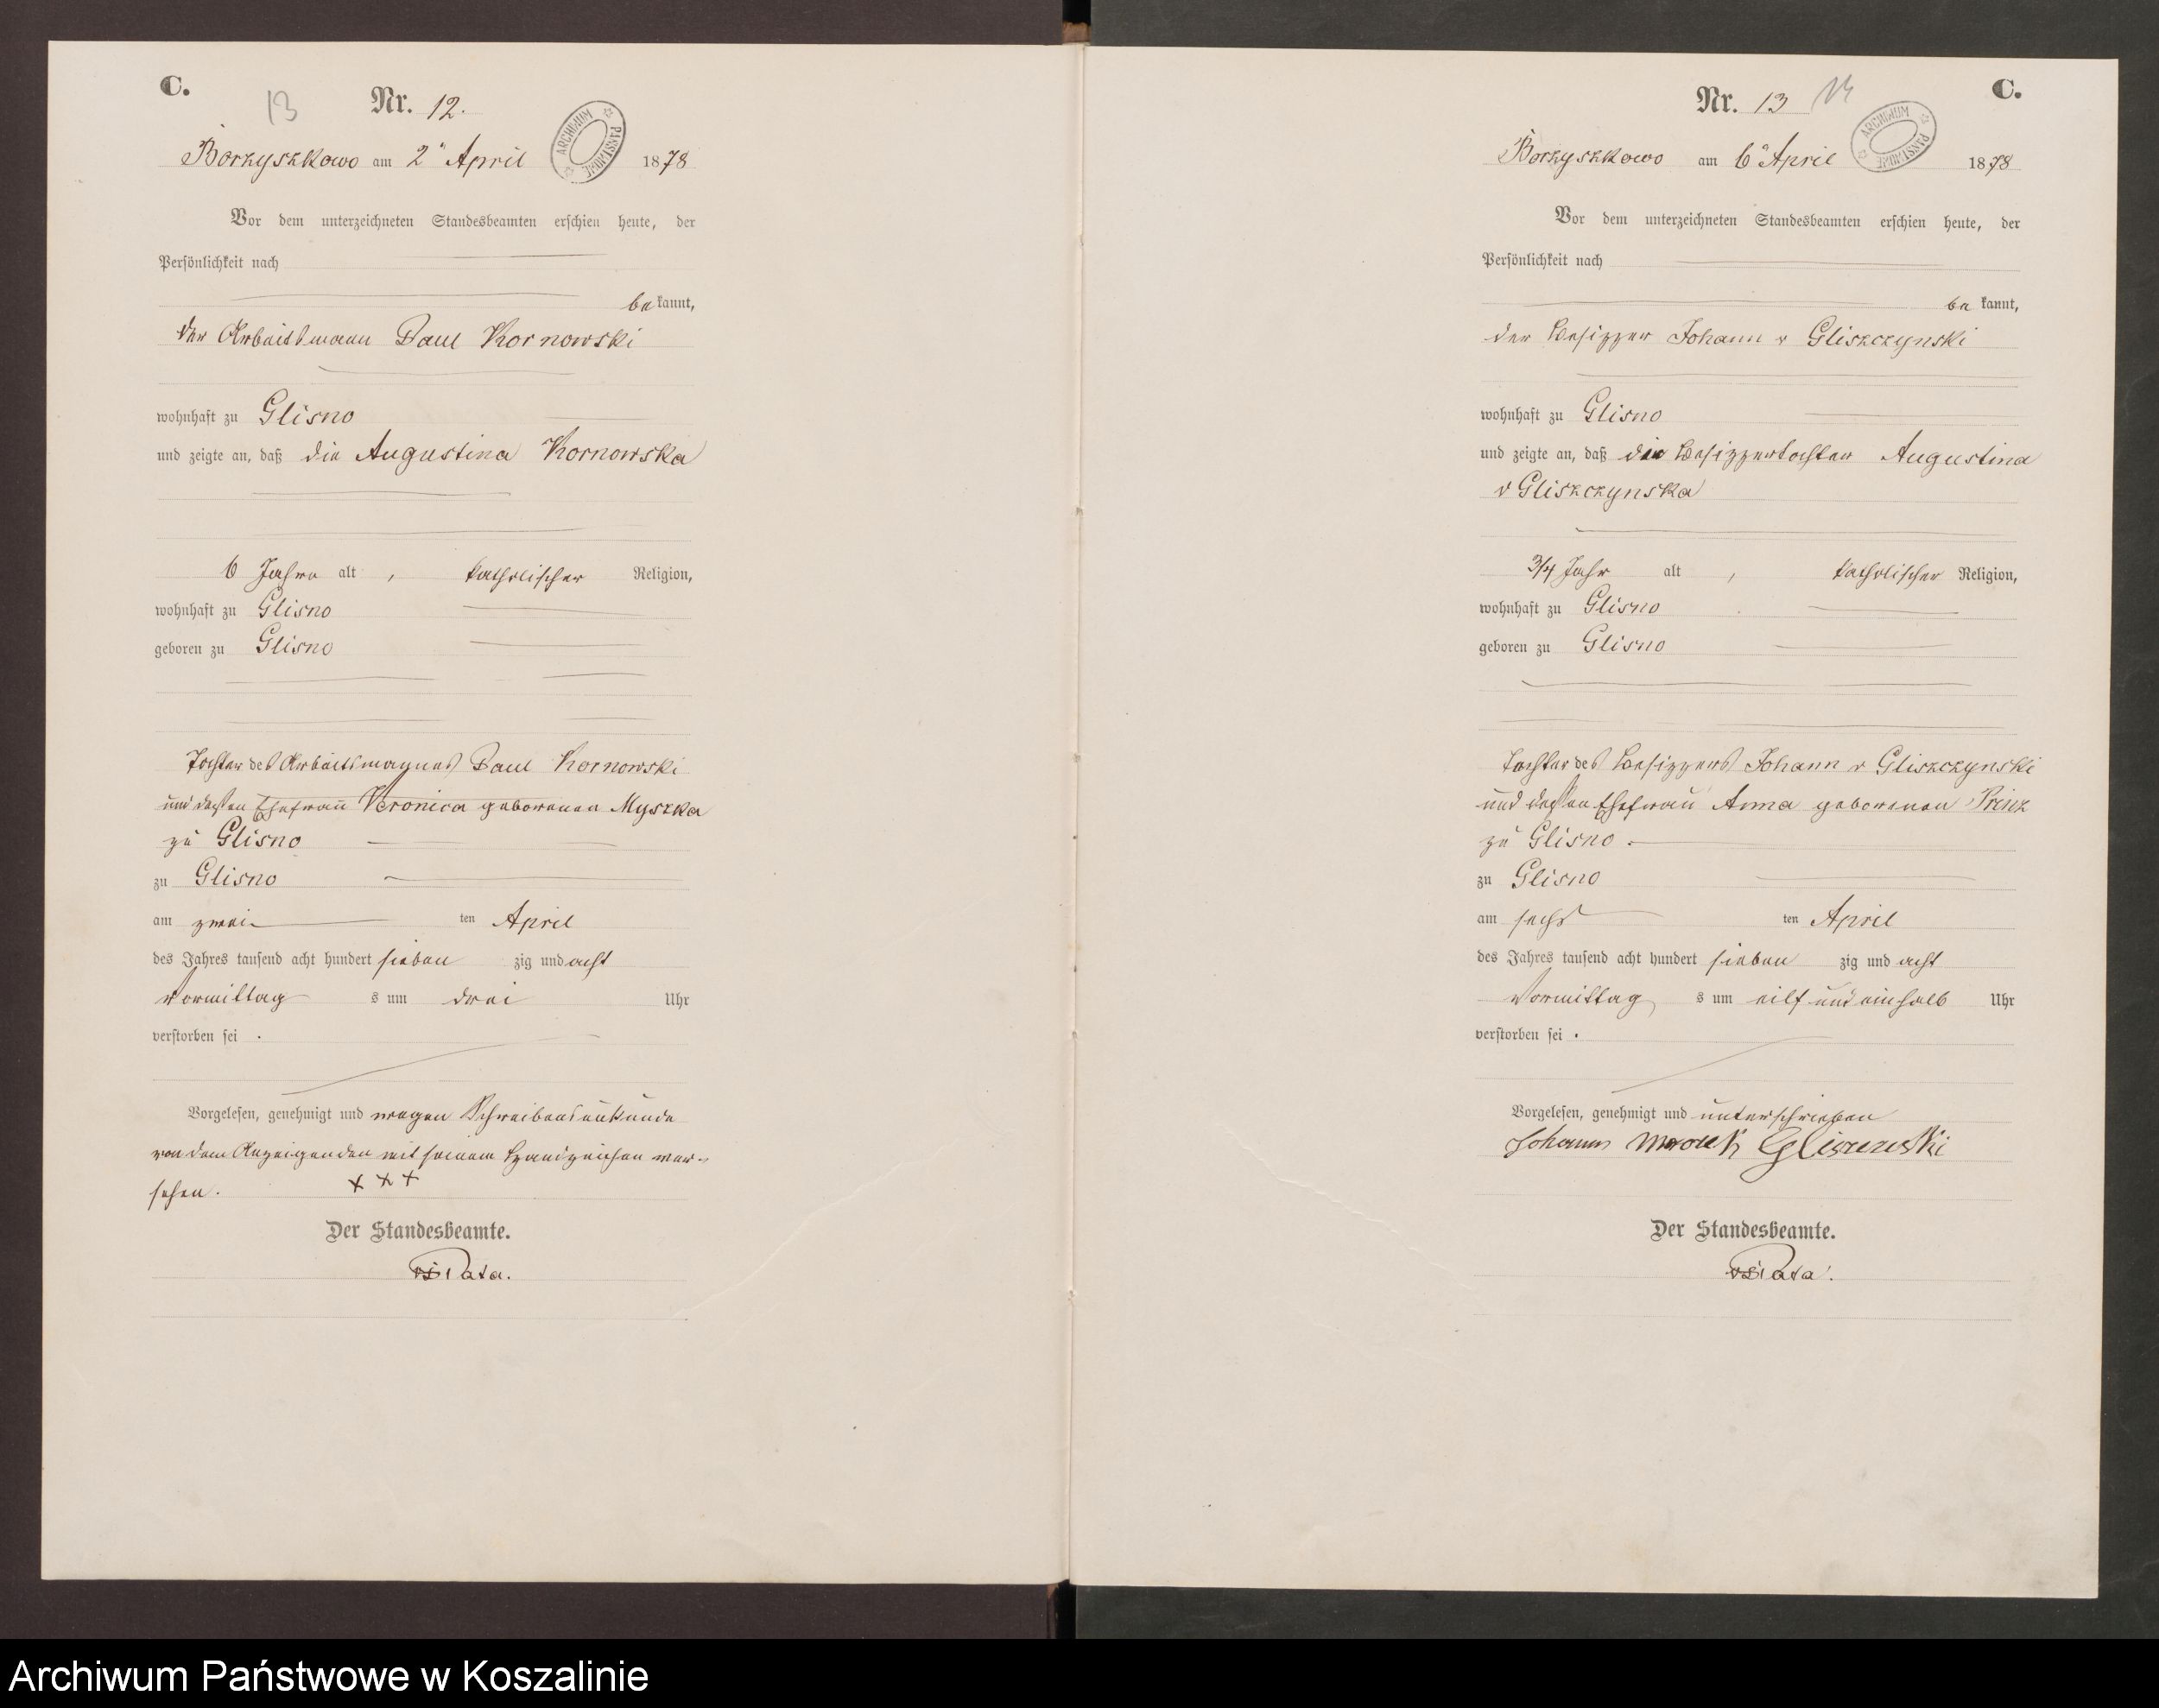 C.
13
Nr. 12.
ARCHIWUM PAŃSTWOWE
Borzyszkowo am 2" April 1878
Vor dem unterzeichneten Standesbeamten erschien heute, der
Persönlichkeit nach
bekannt,
der Arbeitsmann Paul Kornowski
wohnhaft zu Glisno
und zeigte an, daß die Augustina Kornowska
6 Jahre alt, katholischer Religion,
wohnhaft zu Glisno
geboren zu Glisno
Tochter des Arbeitsmannes Paul Kornowski
und dessen Ehefrau Veronica geborenen Myszka
zu Glisno
zu Glisno
am zwei ten April
des Jahres tausend acht hundert sieben zig und acht
Vormittag s um drei Uhr
verstorben sei .
Vorgelesen, genehmigt und wegen Schreibensunkunde
von dem Anzeigenden mit seinem Handzeichen ver-
sehen. + + +
Der Standesbeamte.
Pata.
C.
Nr. 13
14
ARCHIWUM PAŃSTWOWE
Borzyszkowo am 6" April 1878
Vor dem unterzeichneten Standesbeamten erschien heute, der
Persönlichkeit nach
be kannt,
der Besizzer Johann v Gliszczynski
wohnhaft zu Glisno
und zeigte an, daß die Besizzertochter Augustina
v Gliszczynska
3/4 Jahr alt, katholischer Religion,
wohnhaft zu Glisno
geboren zu Glisno
Tochter des Besizzers Johann v Gliszczynski
und dessen Ehefrau Anna geborenen Prinz
zu Glisno.
zu Glisno
am sechs ten April
des Jahres tausend acht hundert sieben zig und acht
Vormittag s um eilf und einhalb Uhr
verstorben sei .
Vorgelesen, genehmigt und unterschrieben
Johann
Der Standesbeamte.
Pata.
Archiwum Państwowe w Koszalinie